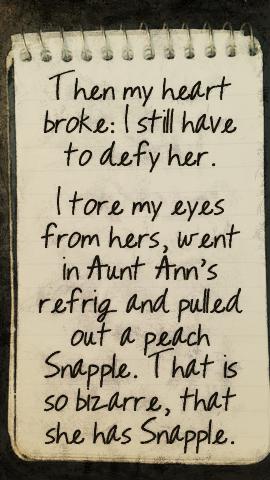 Then my heart
broke: I still have
to defy her.
I tore my eyes
from hers, went
in Aunt Ann's
refrig and pulled
out a peach
Snapple. That is
so bizarre, that
she has Snapple.